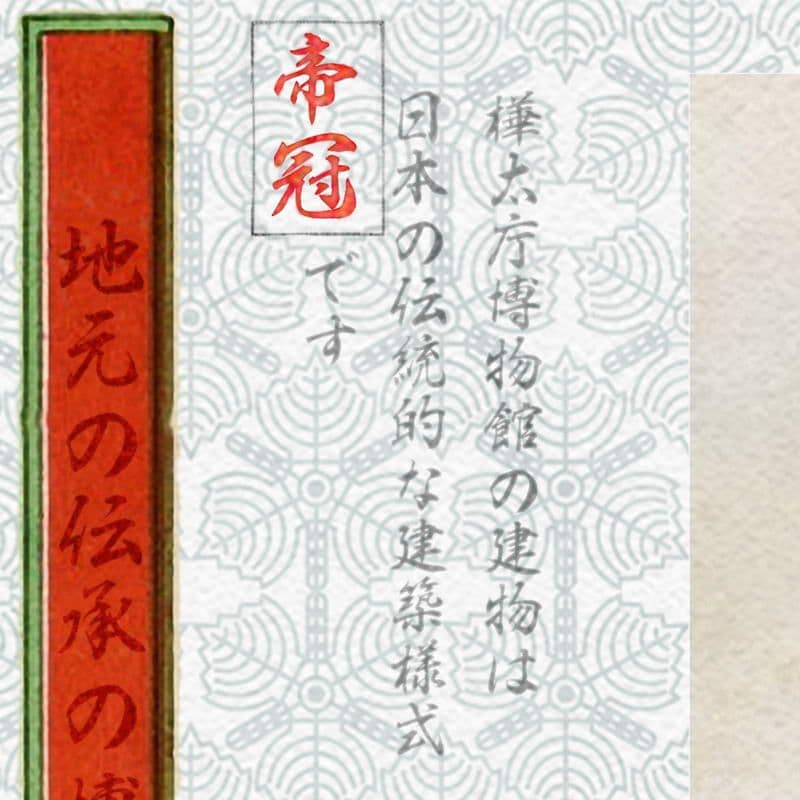 樺太庁博物館の建物は
日本の伝統的な建築様式
帝冠
です
地元の伝承の博